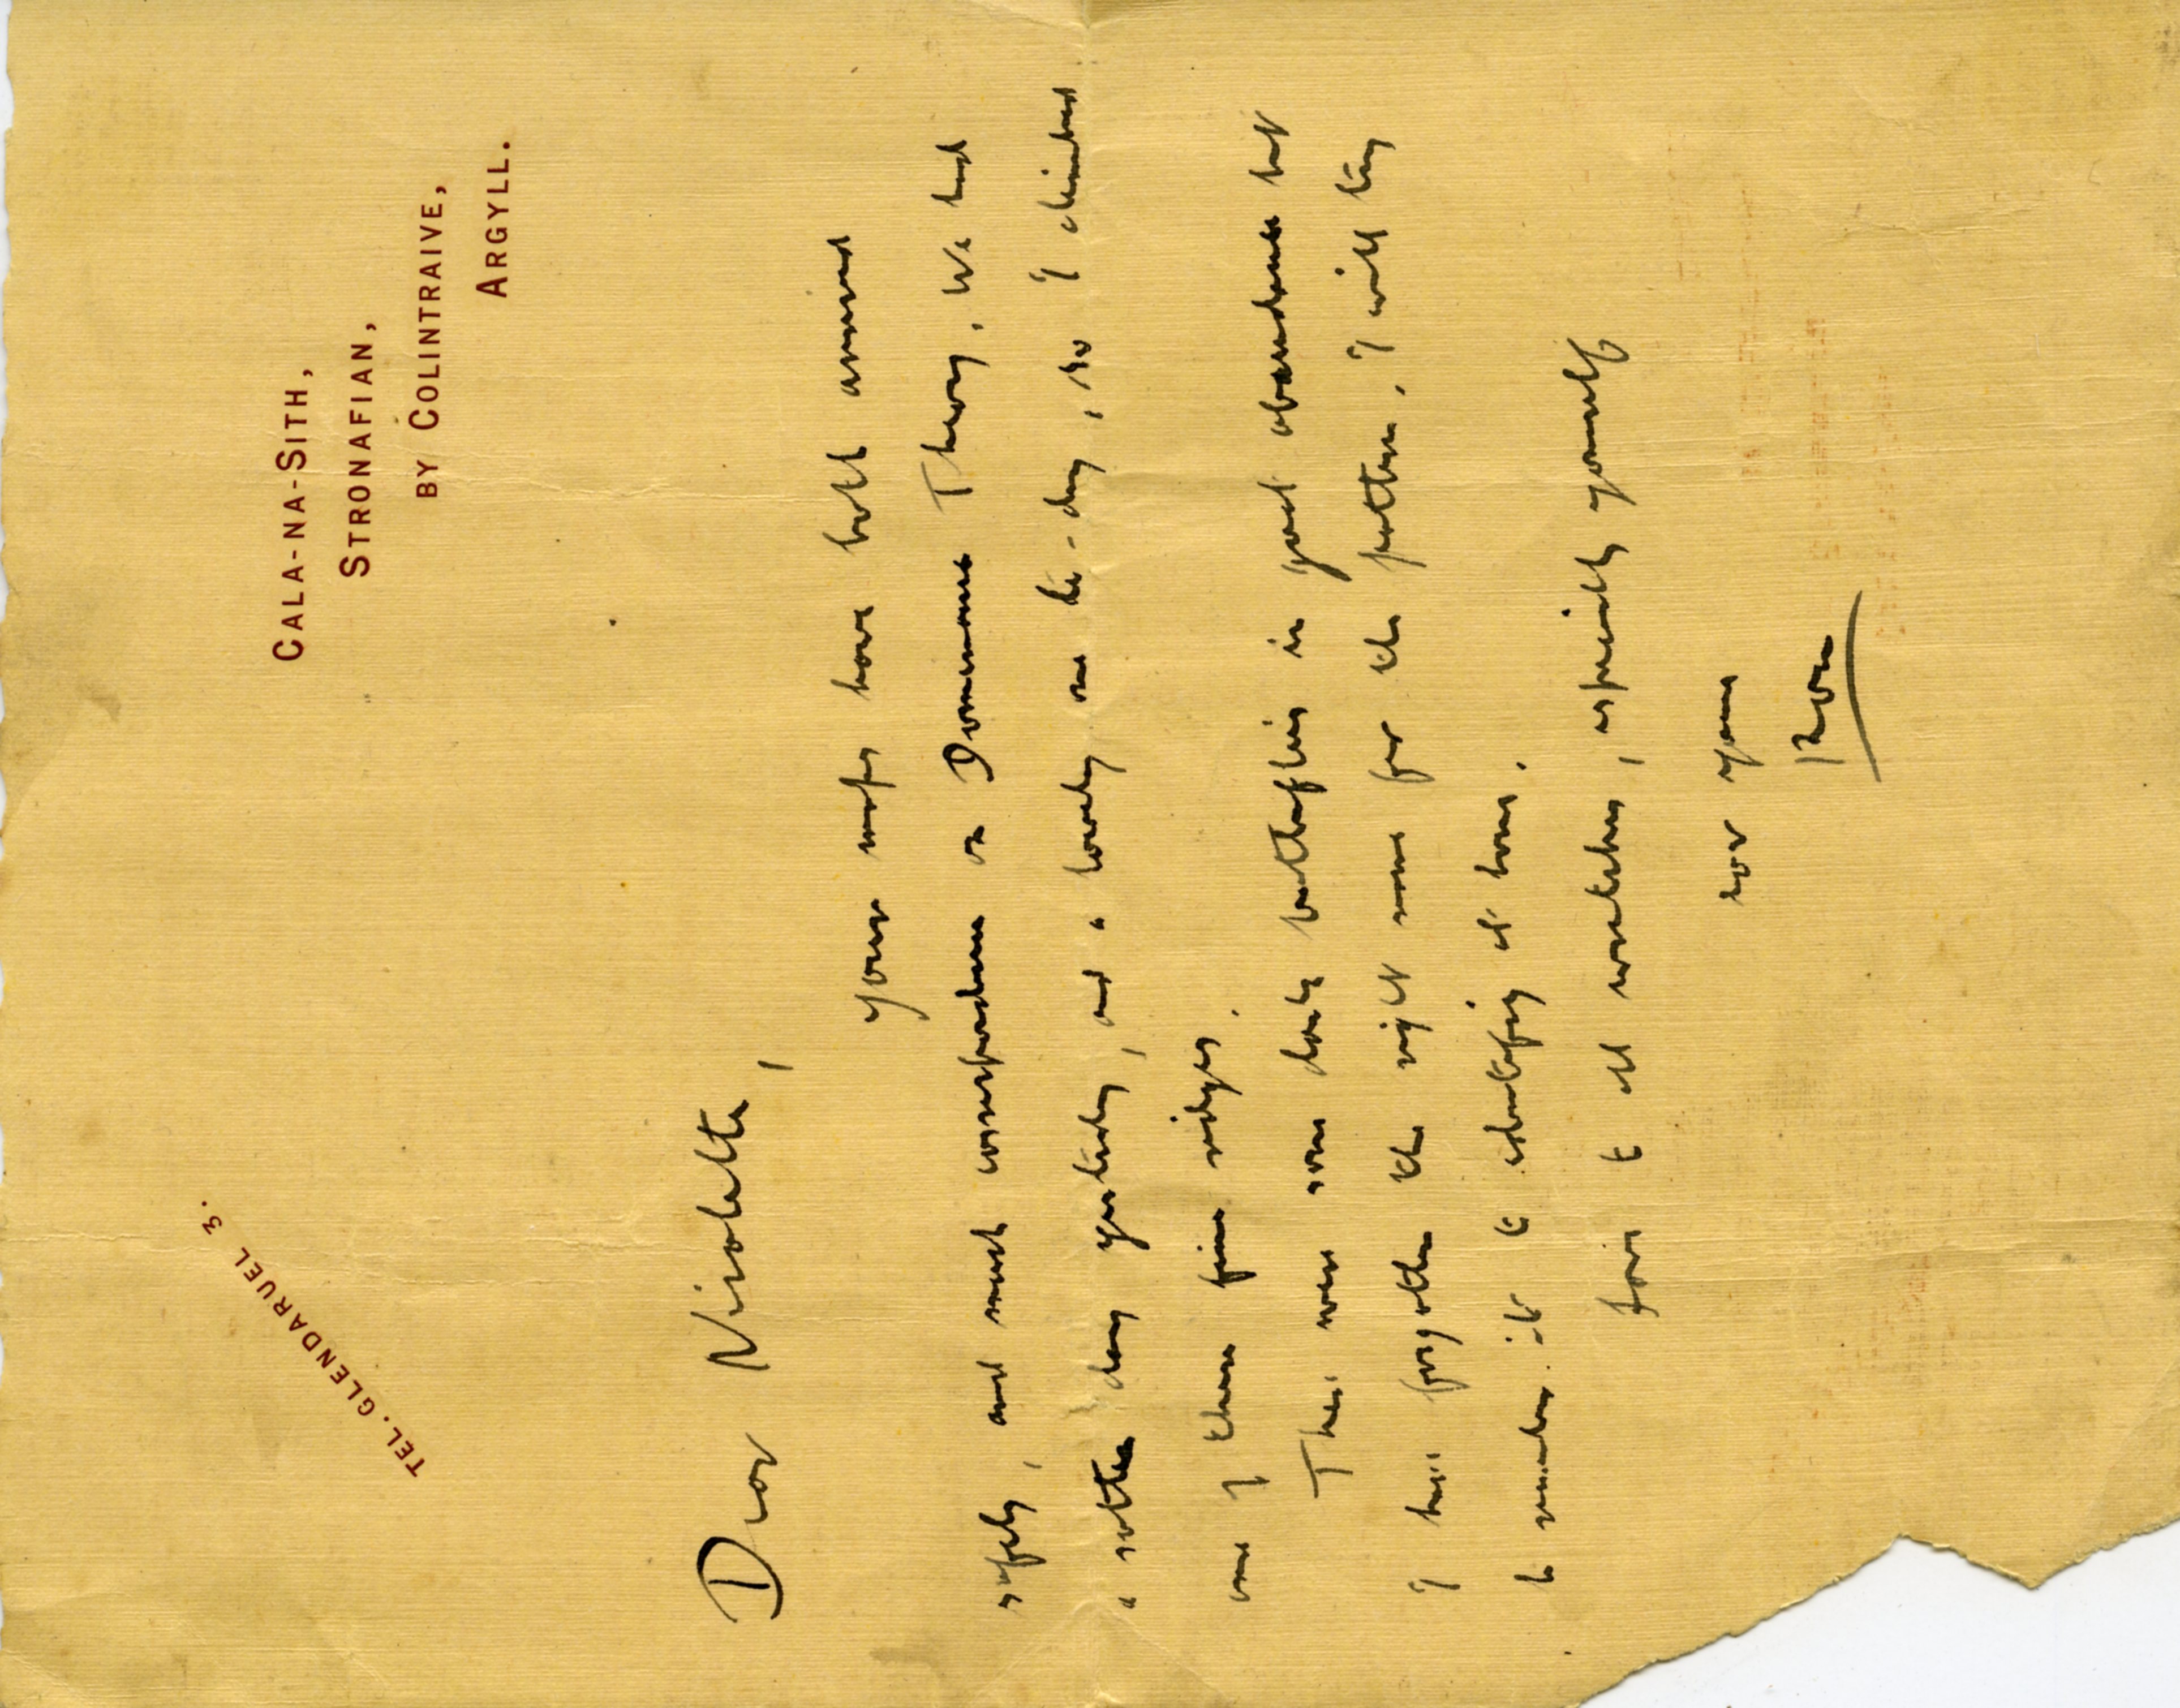 TEL. GLENDARUEL 3.
CALA-NA-SITH,
STRONAFIAN,
BY COLINTRAIVE,
ARGYLL.
Dear Nicolette,
your maps have both arrived
safely, and much correspondence on Dominance Theory. We had
a rotten day yesterday, and a lovely one to-day, so I climbed
one of these fine ridges.
There were some lovely butterflies in great abundance but
I have forgotten the right name for the pattern. I will try
to remember it to identify at home.
love to all wretches, especially yourself
love yours